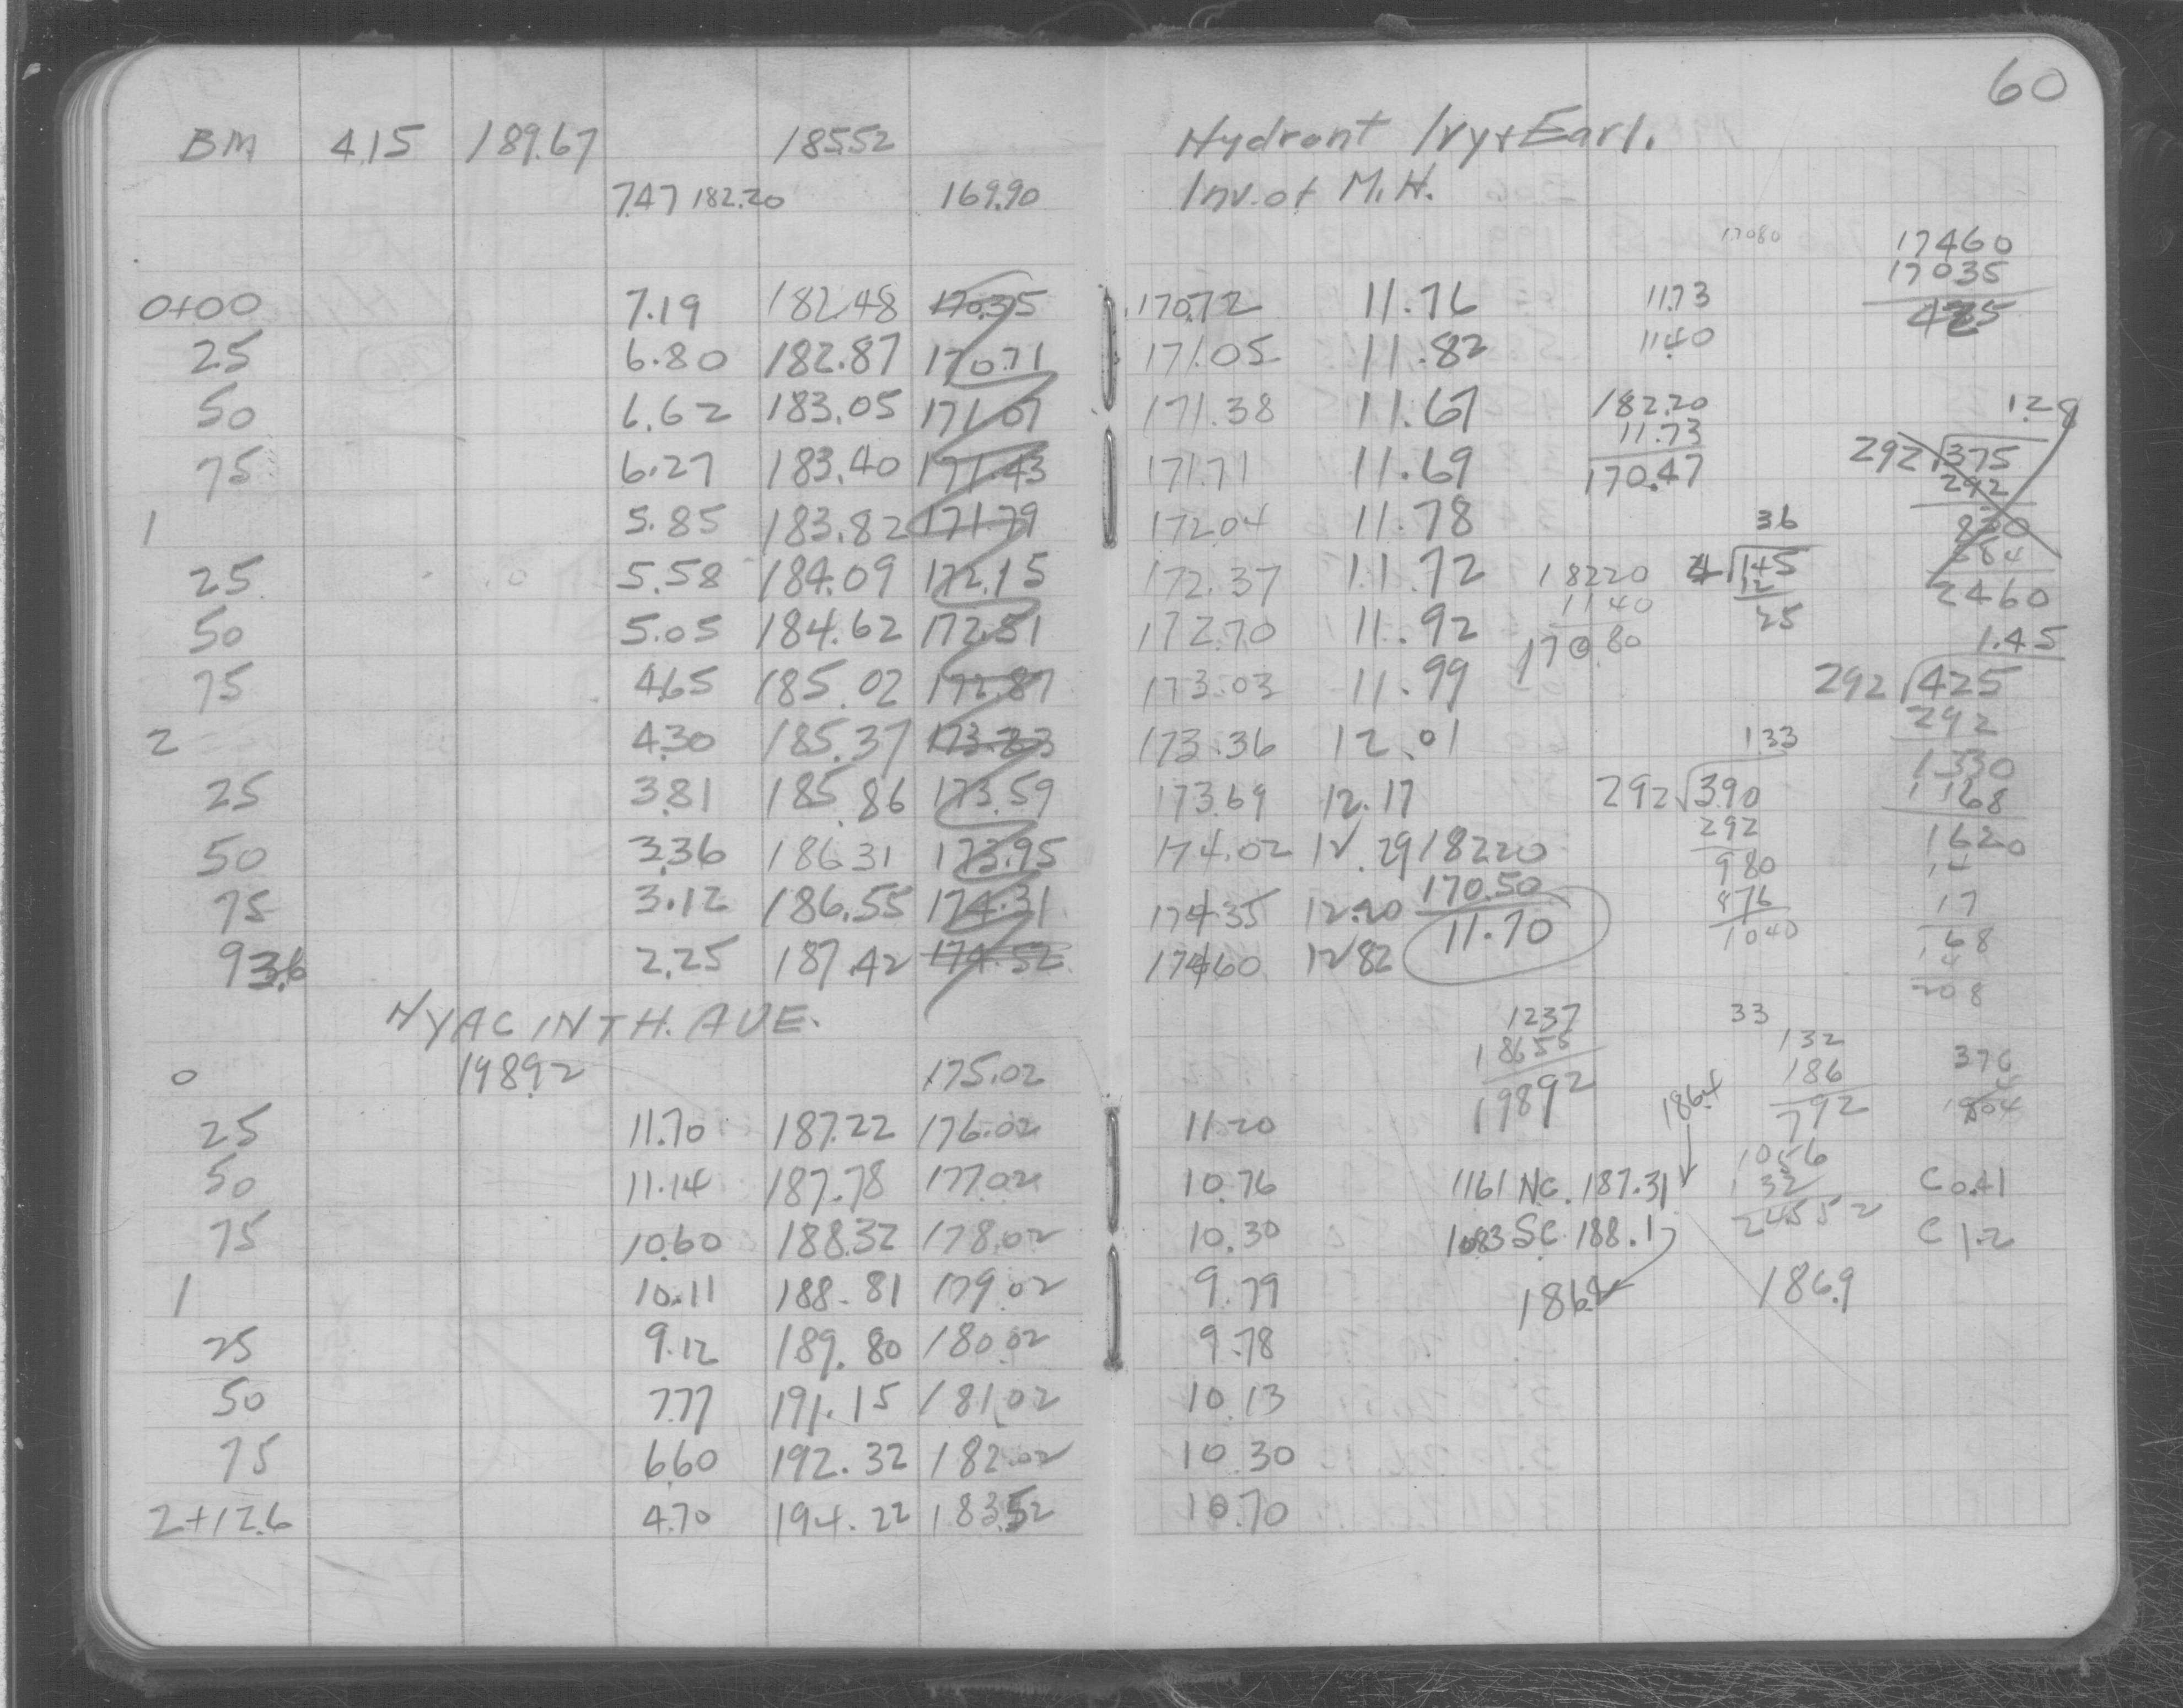 60
BM 4.15 189.67 185.52 Hydrant Ivy + Earl.
7.47 182.20 169.90 Inv. of M.H.
17080 17460
17035
0+00 7.19 182.48 170.35 170.72 11.76 11.73 425
25 6.80 182.87 170.71 171.05 11.82 11.40
50 6.62 183.05 171.07 171.38 11.67 182.20 1.28
11.73 292 375
75 6.27 183.40 171.43 171.71 11.69 170.47 292
1 5.85 183.82 171.79 172.04 11.78 36 830
584
25 5.58 184.09 172.15 172.37 11.72 18220 4 145 2460
1140 12
50 5.05 184.62 172.51 172.70 11.92 170.80 25 1.45
75 4.65 185.02 172.87 173.03 11.99 292 425
292
2 4.30 185.37 173.23 173.36 12.01 133 1330
25 3.81 185.86 173.59 173.69 12.17 292 390 1168
292
50 3.36 186.31 173.95 174.02 12.29 18220 980 1620
75 3.12 186.55 174.31 174.35 12.20 170.50 876 17
11.70 1040 168
93.6 2.25 187.42 174.52 174.60 12.82 208
HYACINTH. AVE. 1237 33
18655 132 376
0 198.92 175.02 19892 186 1804
186.4 792
25 11.70 187.22 176.02 11.20
1056
50 11.14 187.78 177.02 10.76 1161 NC. 187.31 132 C 0.41
24552
75 10.60 188.32 178.02 10.30 1083 SC. 188.1 C 1.2
1 10.11 188.81 179.02 9.79 186.9
25 9.12 189.80 180.02 9.78
50 7.77 191.15 181.02 10.13
75 6.60 192.32 182.02 10.30
2+12.6 4.70 194.22 183.52 10.70